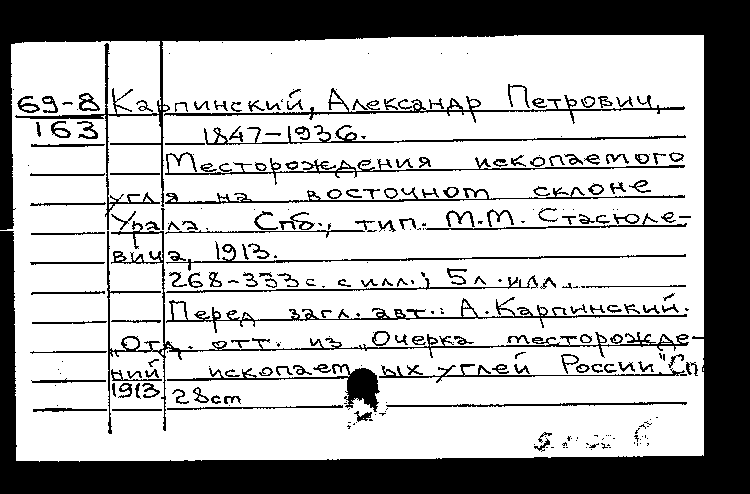 69-8 Карпинский, Александр Петрович,
163 1847-1936.
Месторождения ископаемого
угля на восточном склоне
Урала. Спб., тип. М.М. Стасюле-
вича, 1913.
268-333 с. с илл.; 5 л. илл.
Перед загл. авт.: А. Карпинский.
„Отд. отт. из „Очерка месторожде-
ний ископаемых углей России." Сп
1913. 28 cm